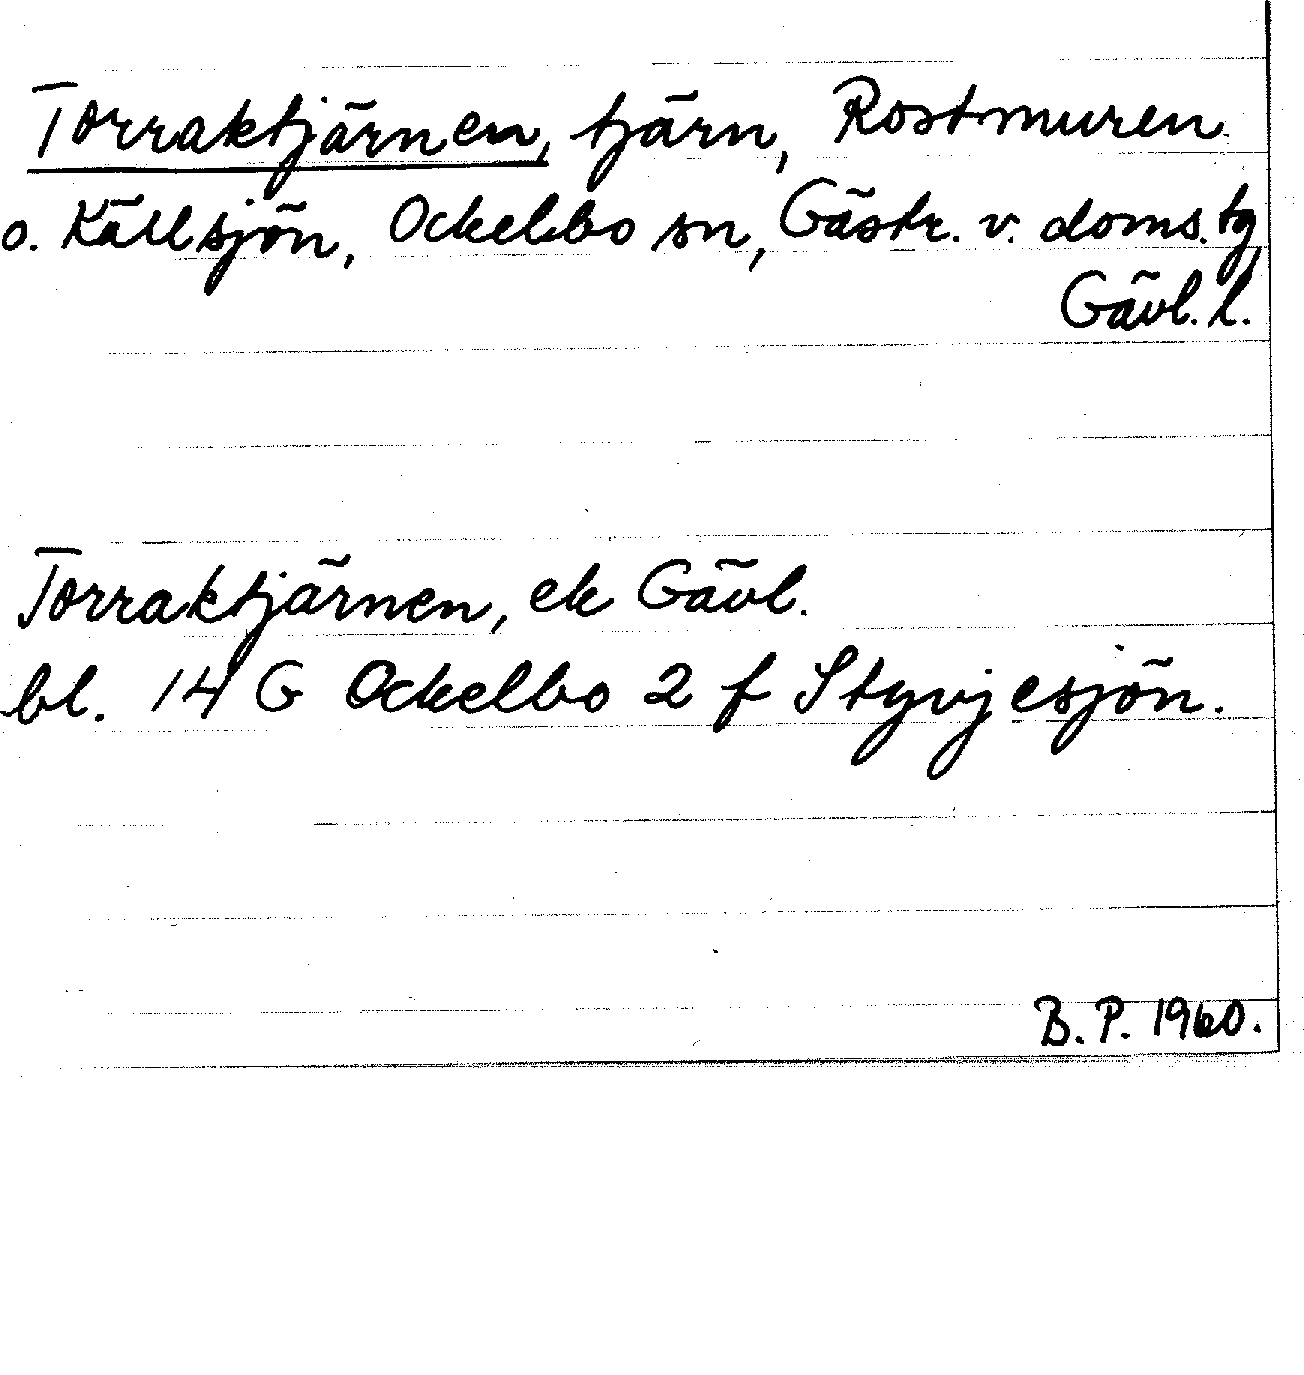 Torraktjärnen, tjärn, Rostmuren
o. Källsjön, Ockelbo sn, Gästr. v. doms. tg
Gävl. l.
Torraktjärnen, ek Gävl.
bl. 14 G Ockelbo 2 f Styvjesjön.
B. P. 1960.